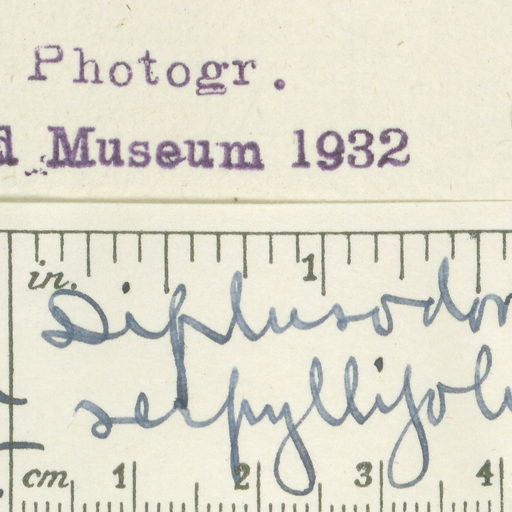 Photogr.
Museum 1932
in. 1
Diplusodon
serpyllifoli
cm 1 2 3 4